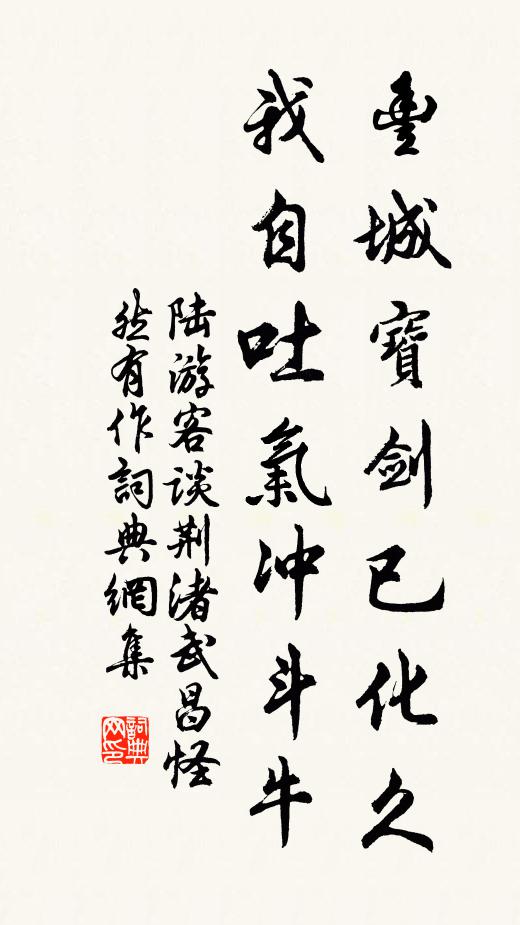 豐城寶剑已化久
我自吐氣冲斗牛
陆游客谈荆渚武昌怪
然有作詞典網集
詞典网印